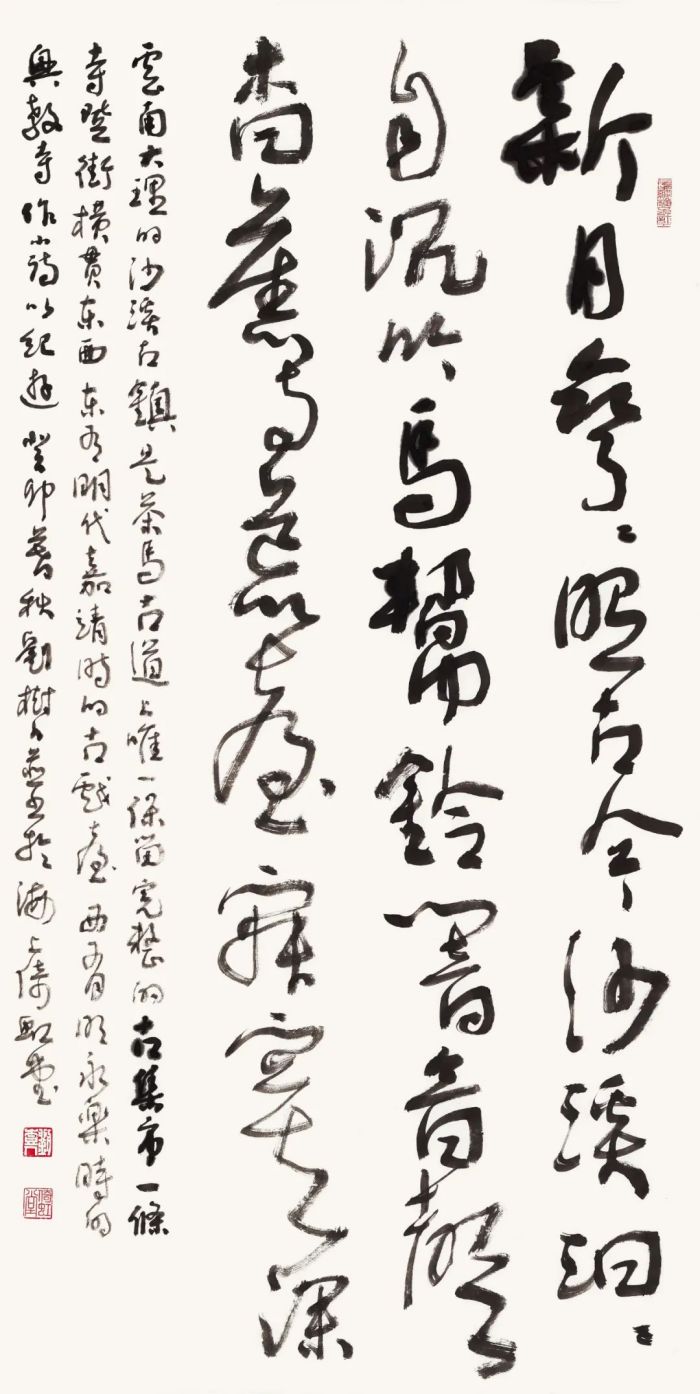 新月彎彎照古今沙溪汩汩
自沉吟馬幫鈴闇音聲
杳舊臺寂寞深
雲南大理的沙溪古鎮是茶馬古道上唯一保留完整的古集市一條
寺登街橫貫東西東有明代嘉靖時的古戲臺西有明永樂時的
興教寺作小詩以紀遊癸卯暮秋劉樹人於海上倚虹堂